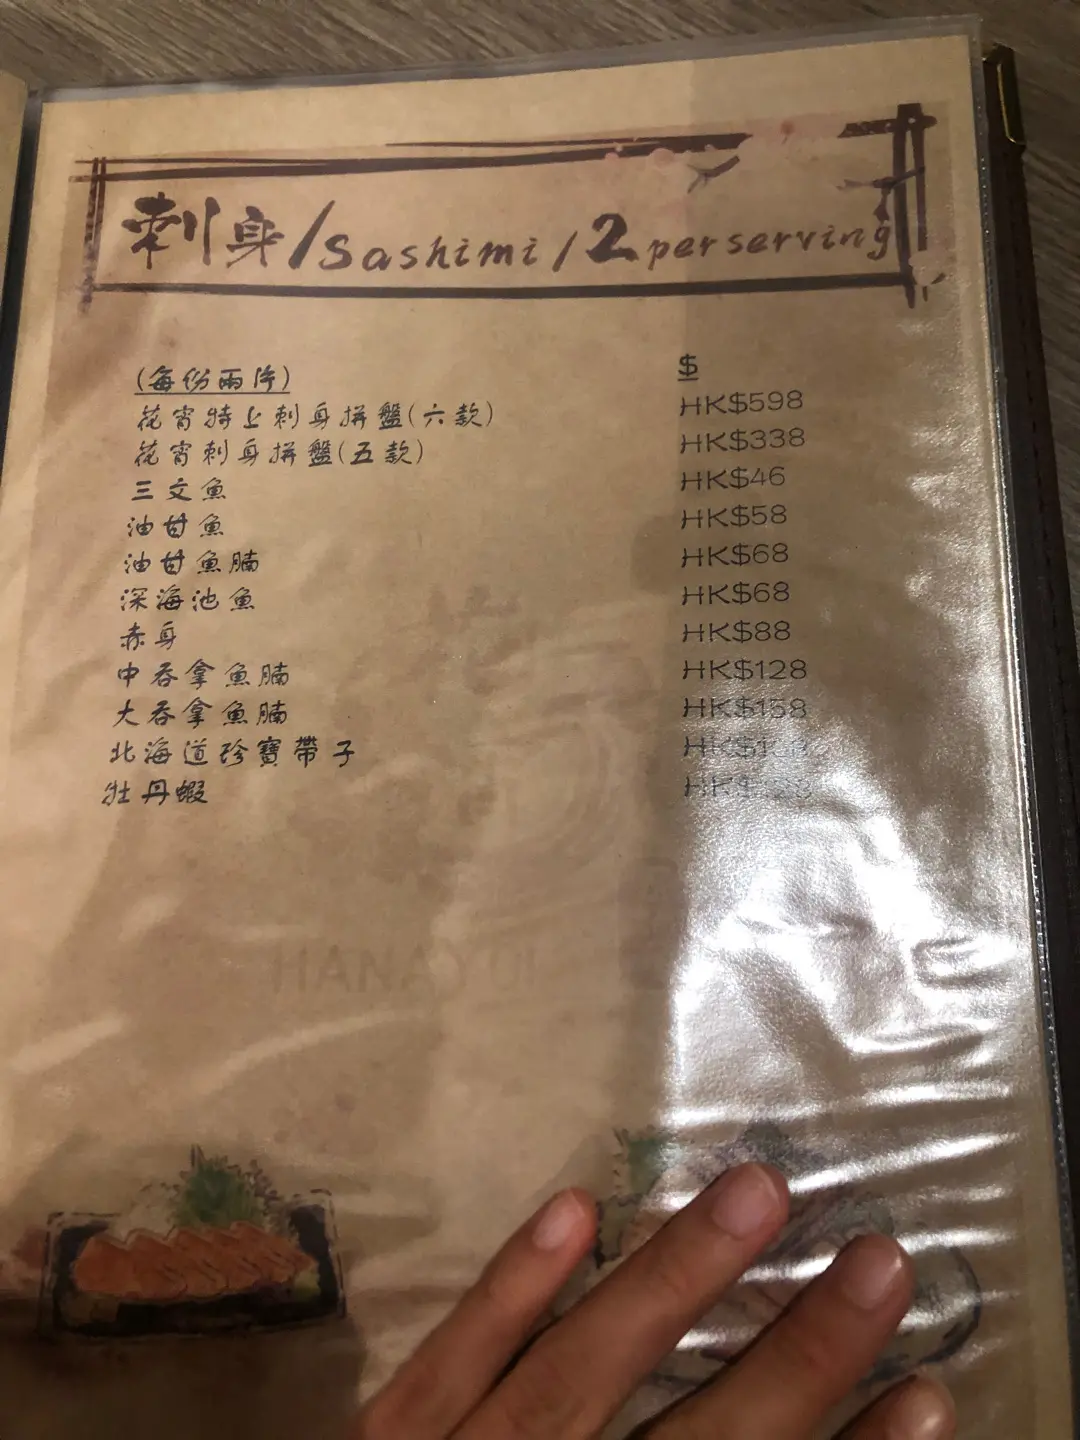 刺身/Sashimi/2 per serving
(每份兩片) $
花宵特上刺身拼盤(六款) HK$598
花宵刺身拼盤(五款) HK$338
三文魚 HK$46
油甘魚 HK$58
油甘魚腩 HK$68
深海池魚 HK$68
赤身 HK$88
中吞拿魚腩 HK$128
大吞拿魚腩 HK$158
北海道珍寶帶子
牡丹蝦
HANAYOI